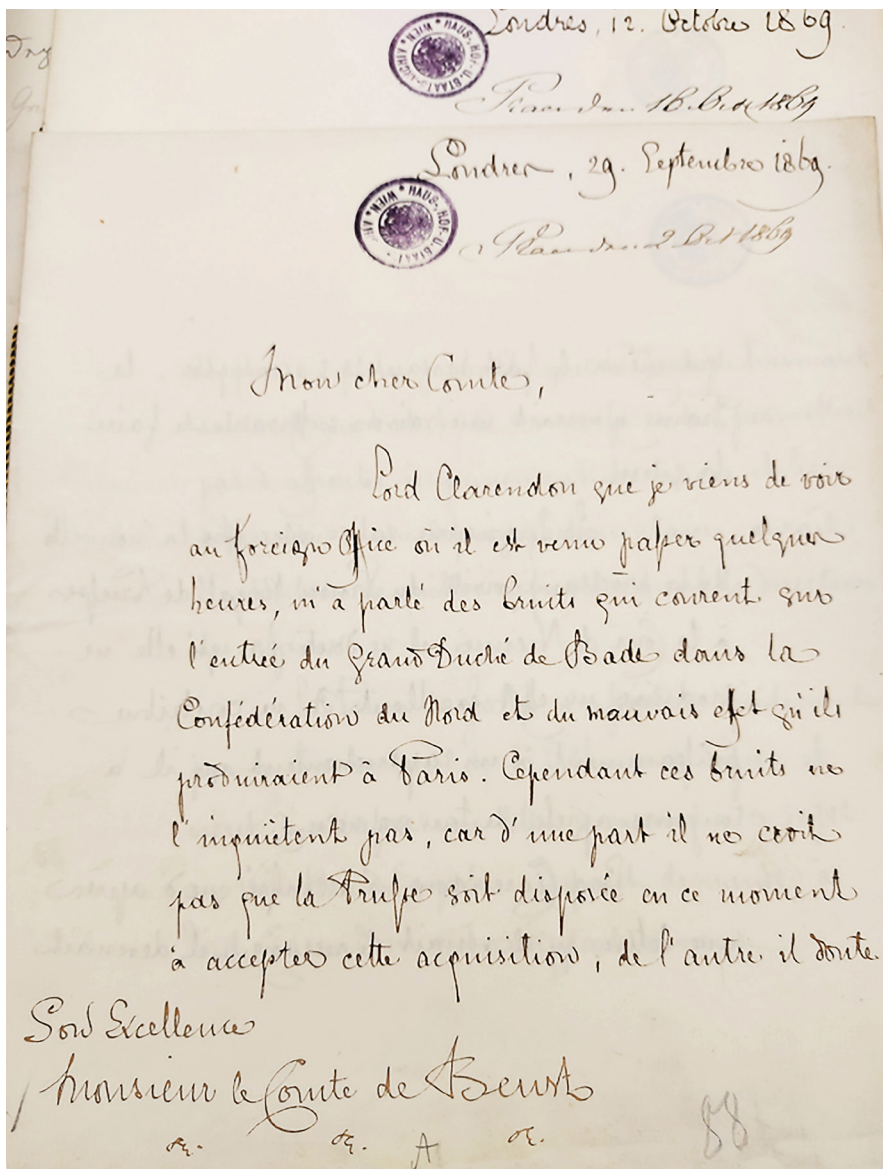 Londres, 12. Octobre 1869.
WIEN * HAUS-, HOF- U. STAATS-ARCHIV
16. Oct 1869
Londres, 29. Septembre 1869.
WIEN * HAUS-, HOF- U. STAAT
2 Oct 1869
Mon cher Comte,
Lord Clarendon que je viens de voir
au Foreign Office où il est venu passer quelques
heures, m'a parlé des bruits qui courent sur
l'entrée du Grand Duché de Bade dans la
Confédération du Nord et du mauvais effet qu'ils
produiraient à Paris. Cependant ces bruits ne
l'inquiètent pas, car d'une part il ne croit
pas que la Prusse soit disposée en ce moment
à accepter cette acquisition, de l'autre il doute
Son Excellence
Monsieur le Comte de Beust
A
88